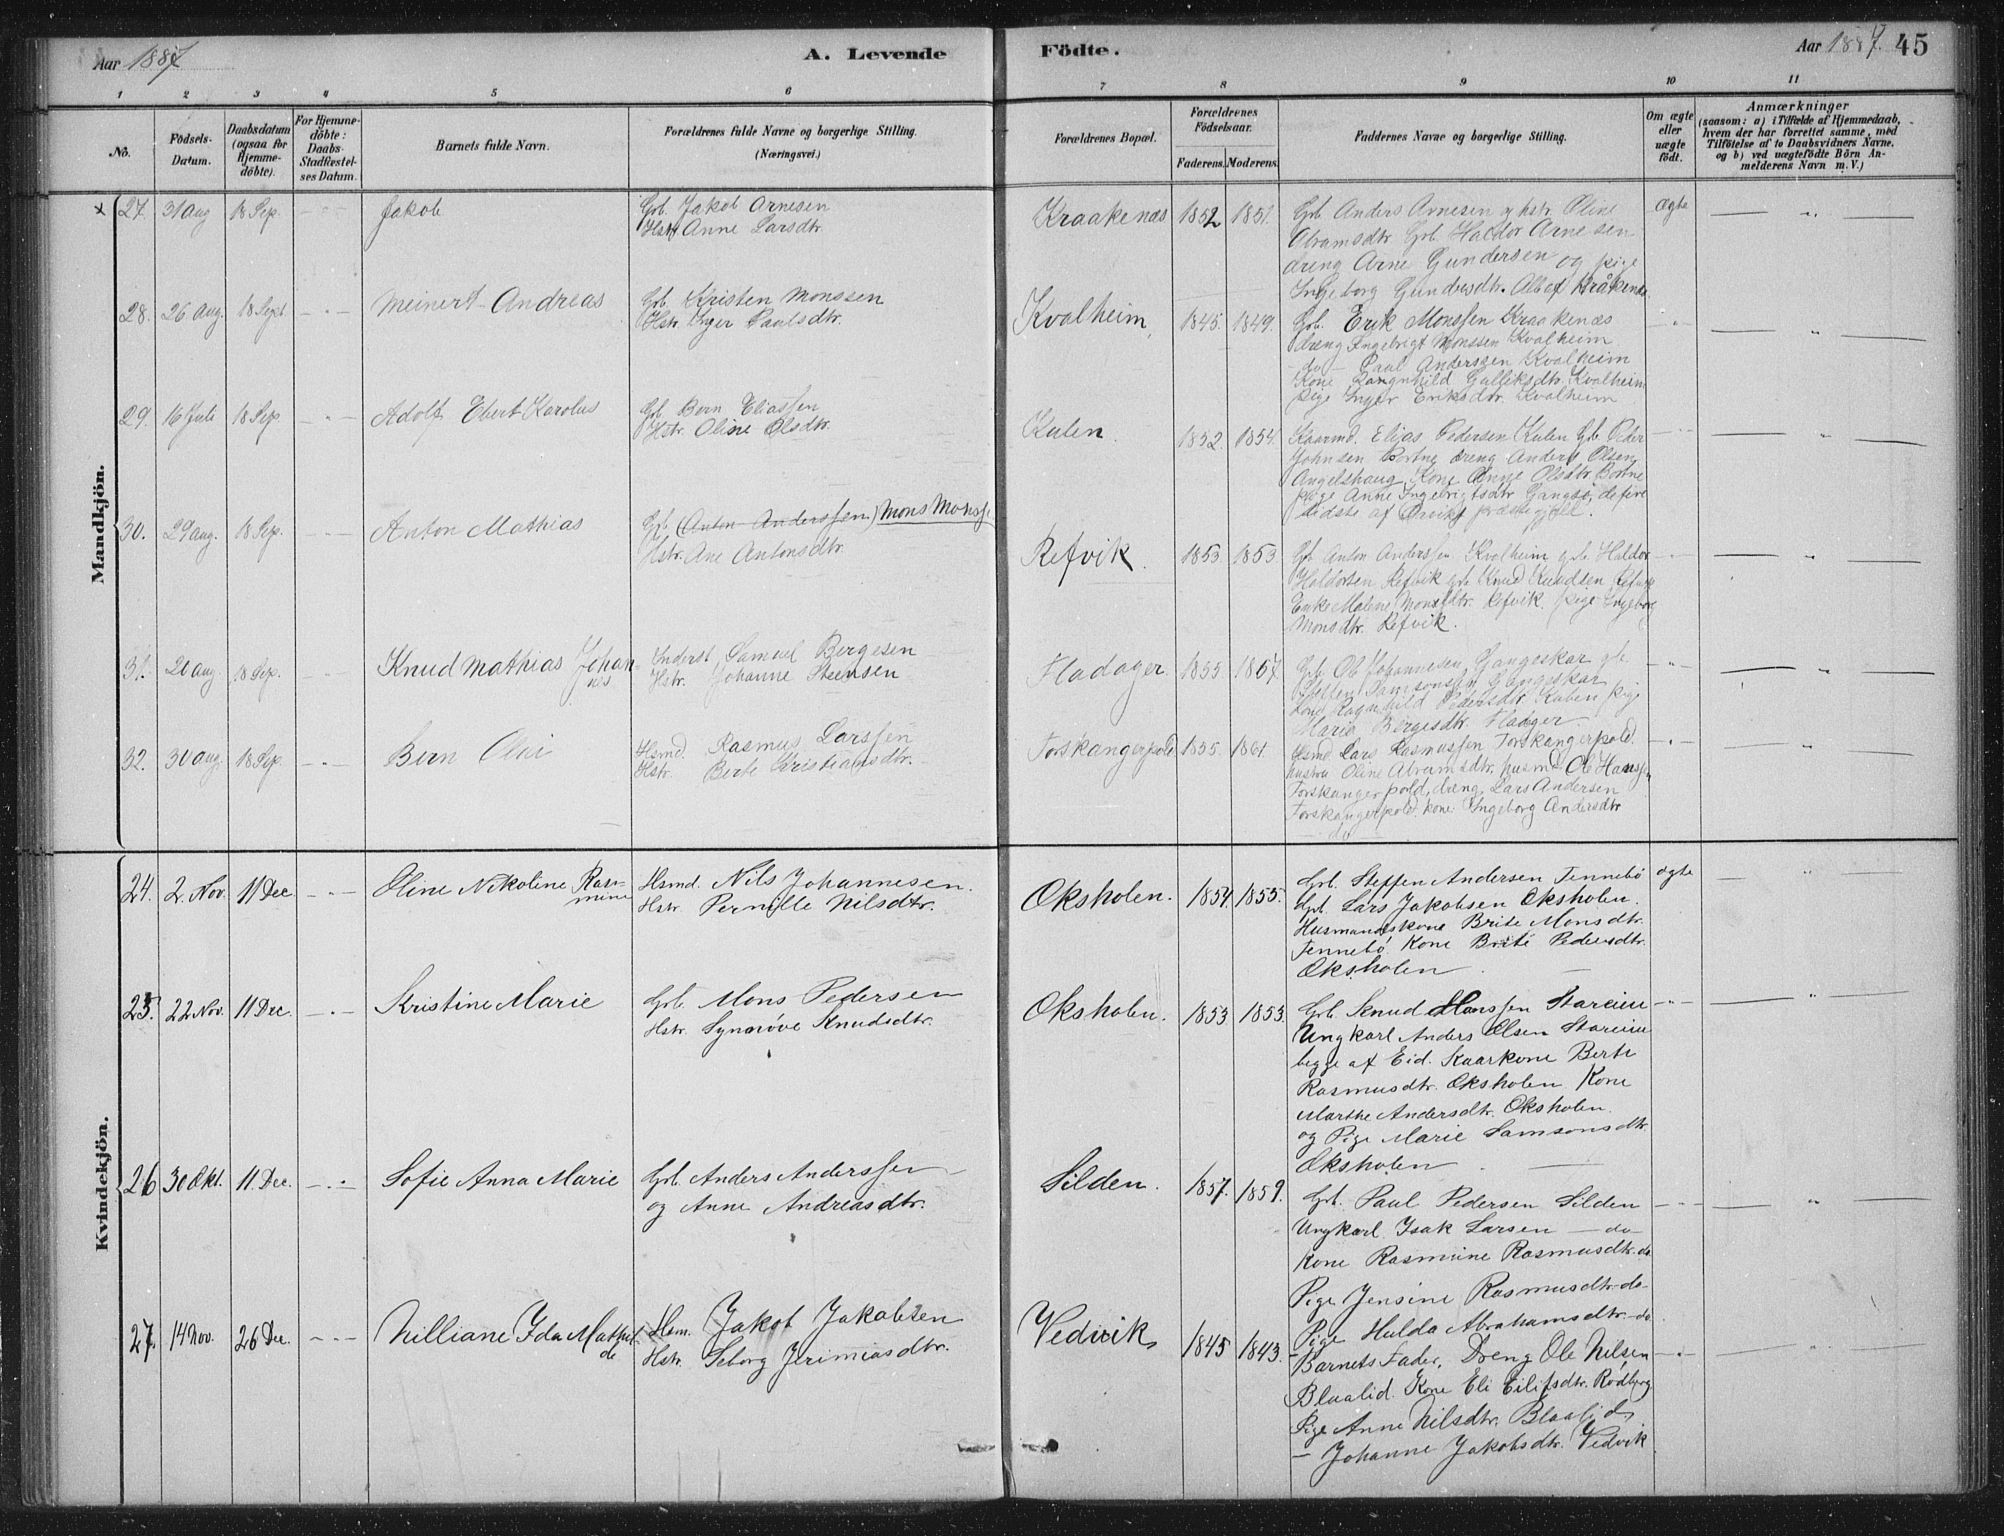 Aar 1887
A. Levende
Födte.
Aar 1887. 45
1 2 3 4 5 6 7 8 9 10 11
No.
Födsels-Datum.
Daabsdatum (ogsaa for Hjemmedöbte).
For Hjemmedöbte: Daabs-Stadfæstelses Datum.
Barnets fulde Navn.
Forældrenes fulde Navne og borgerlige Stilling. (Næringsvei.)
Forældrenes Bopæl.
Forældrenes Födselsaar.
Faderens. Moderens.
Faddernes Navne og borgerlige Stilling.
Om ægte eller uægte födt.
Anmærkninger
(saasom: a) i Tilfælde af Hjemmedaab, hvem der har forrettet samme, med Tilföielse af to Daabsvidners Navne, og b) ved uægtefödte Börn Anmelderens Navn m. V.)
Mandkjön.
x 27. 31 Aug 18 Sep. Jakob
Grb. Jakob Arnesen
Hstr Anne Larsdtr.
Kraakenæs 1852 1851.
Grb Anders Arnesen og hstr. Oline
Abramsdtr Grb. Haldor Arnesen
dreng Arne Gundersen og pige
Ingeborg Gundersdtr. Alle af Kråkenæs
Ægte
28. 26 Aug. 18 Sept Meinert Andreas
Grb. Kristen Monssen
Hstr. Inger Paulsdtr.
Kvalheim, 1845. 1849.
Grb. Erik Monssen Kraakenæs
dreng Ingebrigt Monssen Kvalheim
- do - Paul Anderssen Kvalheim
Kone Rangnhild Galliksdtr. Kvalheim
pige Inger Eriksdtr. Kvalheim
29. 16 Juli 18 Sep. Adolf Ebert Karolus
Grb. Bern Eliassen
Hstr. Oline Olsdtr.
Kulen. 1852. 1854.
Kaarmd. Elias Pedersen Kulen Grb Peder
Johnsen Bortne dreng Anders Olsen
Angelshaug, Kone Anne Olsdtr. Bortne
pige Anne Ingebrigtsdtr Gangsö, de fire
sidste af præstegjeld.
30. 29 aug. 18 Sep. Anton Mathias
Grb. (Anton Anderssen) Mons Monss.
Hstr. Ane Antonsdtr.
Refvik. 1853 1853.
Grb Anton Anderssen Kvalheim grb. Haldor
Haldorsen Refvik grb. Knud Knudsen Refvik
Enke Malene Monsdtr. Refvik. pige Ingeborg
Monsdtr. Refvik.
31. 20 aug 18 Sep. Knud Mathias Johannes
Inderst Samuel Bergesen
Hstr. Johanne Steensen
Fladager. 1855 1857.
Grb. Ole Johannesen, Gangeskar grb
Steffen Samsonsen Gangeskar
kone Ragnhild Pedersdtr. pige
Maria Bergesdtr. Fladager
32. 30 aug. 18 Sep. Bern Olai
Hsmd. Rasmus Larssen
Hstr. Berte Kristiansdtr.
Torskangerpold 1855. 1861.
Hsmd. Lars Rasmussen Torskangerpold.
hustru Oline Abramsdtr. husmd Ole Hanssen
Torskangerpold, dreng Lars Andersen
Torskangerpold. kone Ingeborg Andersdtr
- do -
Kvindekjön.
24. 2. Nov. 11 Dec Oline Nikoline Rasmine
Hsmd. Nils Johannesen.
Hstr. Pernille Nilsdtr.
Oksholen. 1854. 1855.
Grb. Steffen Andersen Tennebö
Grb. Lars Jakobsen Oksholen.
Husmandskone Brite Monsdtr.
Tennebö Kone Brite Pedersdtr.
Oksholen
ægte
25. 22 Nov. 11 Dec. Kristine Marie
Grb. Mons Pedersen
Hstr. Synnöve Knudsdtr.
Oksholen. 1853 1853.
Grb. Knud Hanssen Stareim
Ungkarl Anders Olsen Stareim
begge af Eid. Kaarkone Berte
Rasmusdtr. Oksholen Kone
Marthe Andersdtr. Oksholen.
og Pige Marie Samsonsdtr.
Oksholen
26 30 Okt. 11. Dec. Sofie Anna Marie
Grb. Anders Anderssen
og Anne Andreasdtr.
Silden. 1857. 1859.
Grb. Paul Pedersen Silden
Ungkarl. Isak Larsen - do -
Kone Rasmine Rasmusdtr. do
Pige Jensine Rasmusdtr. do -
Pige Hulda Abrahamsdtr. do
27. 14 Nov. 26 Dec. Nilliane Ida Mathilde
Hsm. Jakob Jakobsen
Hstr. Seborg Jerimiasdtr.
Vedvik 1845 1843.
- Barnets Fader, Dreng Ole Nilsen
Blaalid. Kone Eli Eilifsdtr. Rödberg
Pige Anne Nilsdtr. Blaalid,
- Johanne Jakobsdtr. Vedvik